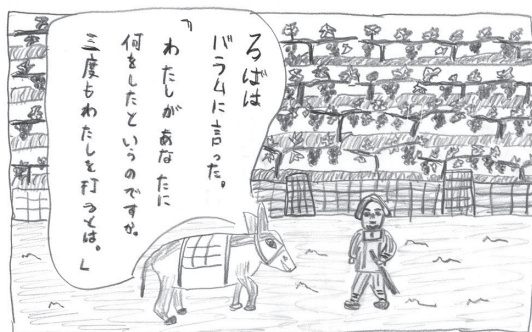 ろばは
バラムに言った。
「わたしがあなたに
何をしたというのですか。
三度もわたしを打つとは。」